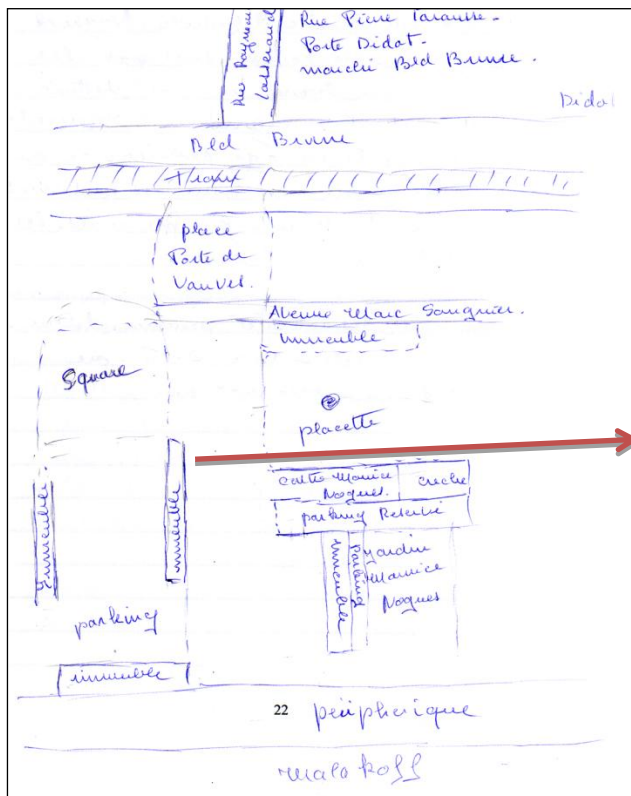 Rue Raymond
Losserand
Rue Pierre Larousse -
Porte Didot -
marché Bld Brune.
Didot
Bld Brune
travx
place
Porte de
Vanves.
Avenue Marc Sangnier.
immeuble
Square
placette
centre Maurice
Nogues.
creche
parking Relevé
Immeuble
immeuble
immeuble
Parking
jardin
Maurice
Nogues
parking
immeuble
22
périphérique
Malakoff